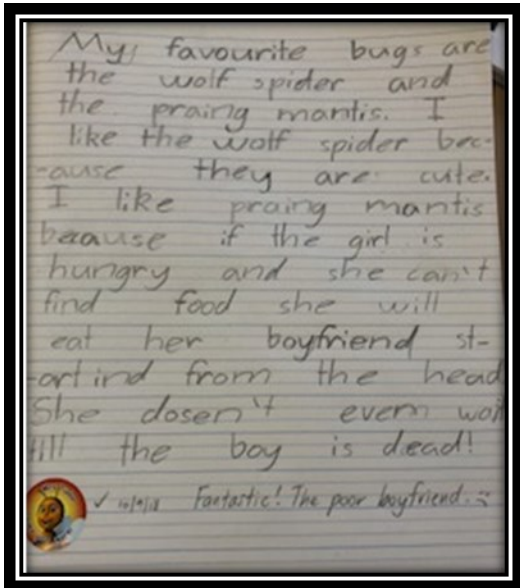 My favourite bugs are
the wolf spider and
the praing mantis. I
like the wolf spider bec-
-ause they are cute.
I like praing mantis
because if the girl is
hungry and she can't
find food she will
eat her boyfriend st-
-artind from the head
She dosen't evem wait
till the boy is dead!
✓ Fantastic! The poor boyfriend.